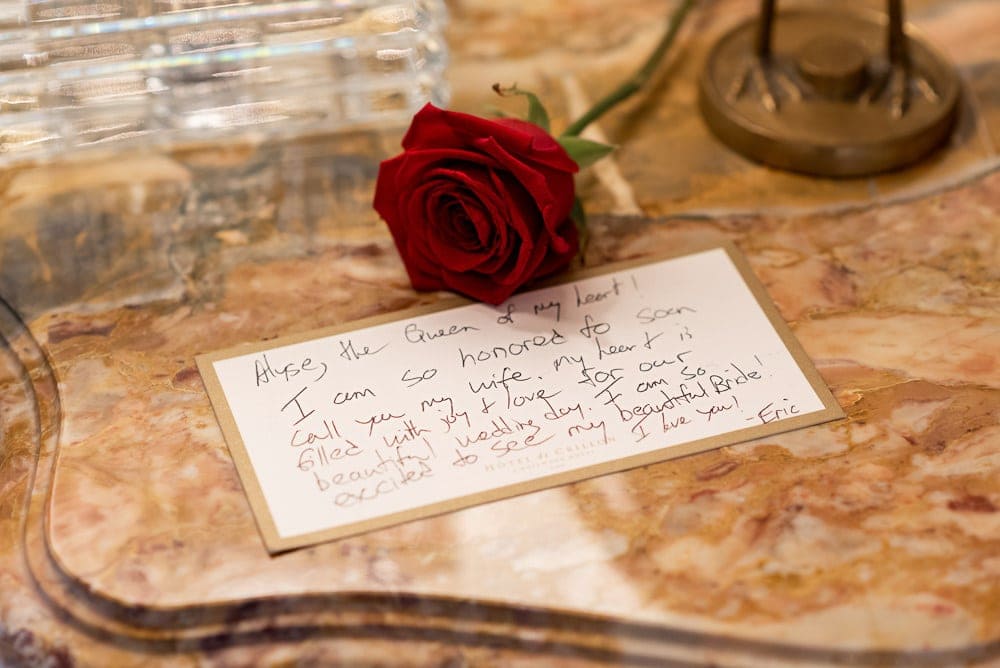 Alyse, the Queen of my heart!
I am so honored to soon
call you my wife. my heart is
filled with joy & love for our
beautiful wedding day. I am so
excited to see my beautiful Bride!
I love you!
-Eric
HÔTEL de CRILLON